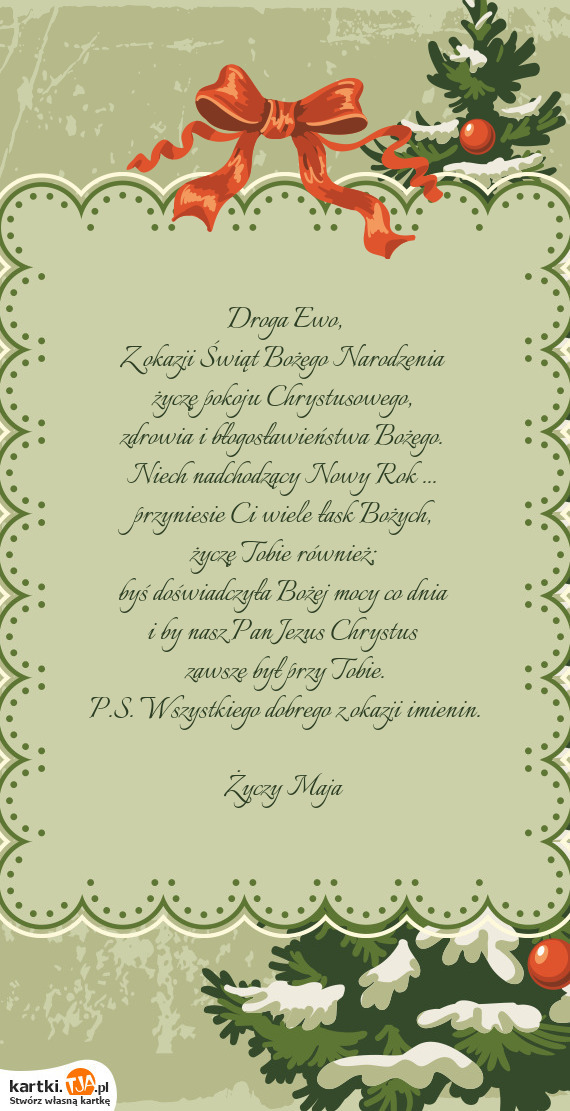 Droga Ewo,
Z okazji Świąt Bożego Narodzenia
życzę pokoju Chrystusowego,
zdrowia i błogosławieństwa Bożego.
Niech nadchodzący Nowy Rok ...
przyniesie Ci wiele łask Bożych,
życzę Tobie również;
byś doświadczyła Bożej mocy co dnia
i by nasz Pan Jezus Chrystus
zawsze był przy Tobie.
P.S. Wszystkiego dobrego z okazji imienin.
Życzy Maja
kartki.TJA.pl
Stwórz własną kartkę